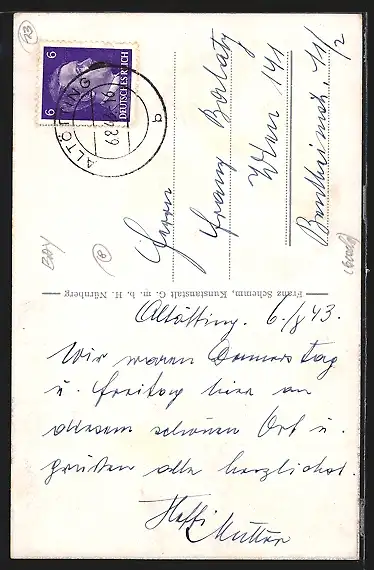 23
6 6
DEUTSCHES REICH
ALTÖTTING
a
Herrn
Franz
Wien 141
11/2
BAY
8
Franz Schemm, Kunstanstalt G. m. b. H. Nürnberg
Altötting. 6./8 43.
Wir waren Donnerstag
u. Freitag hier an
diesem schönen Ort u.
grüßen alle herzlichst.
Steffi
Mutter